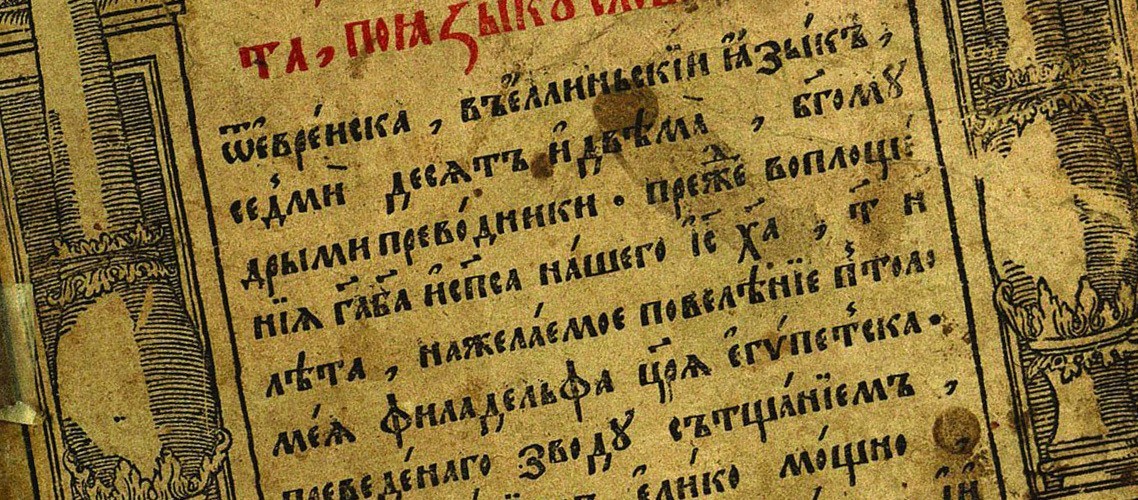 та, поꙗзыкꙋ
ѿе҆вре́нска, въе҆ллиньскїй ꙗ҆зы́къ,
седми́ десѧтъ и҆двѣма̀, бг҃омꙋ
дрыми прево́дники. пре́же воплоще́
нїѧ гд҃аба҃ и҆сп҃са на́шего і҆с҃ хр҃а, т҃ и
лѣта, нажела́емое повелѣ́нїе пт҆оло
ме́ѧ филаде́льфа цр҃ѧ е҆гѵ́петска.
преведе́наго зводꙋ сътща́нїемъ,
е҆ли́ко мо́щно